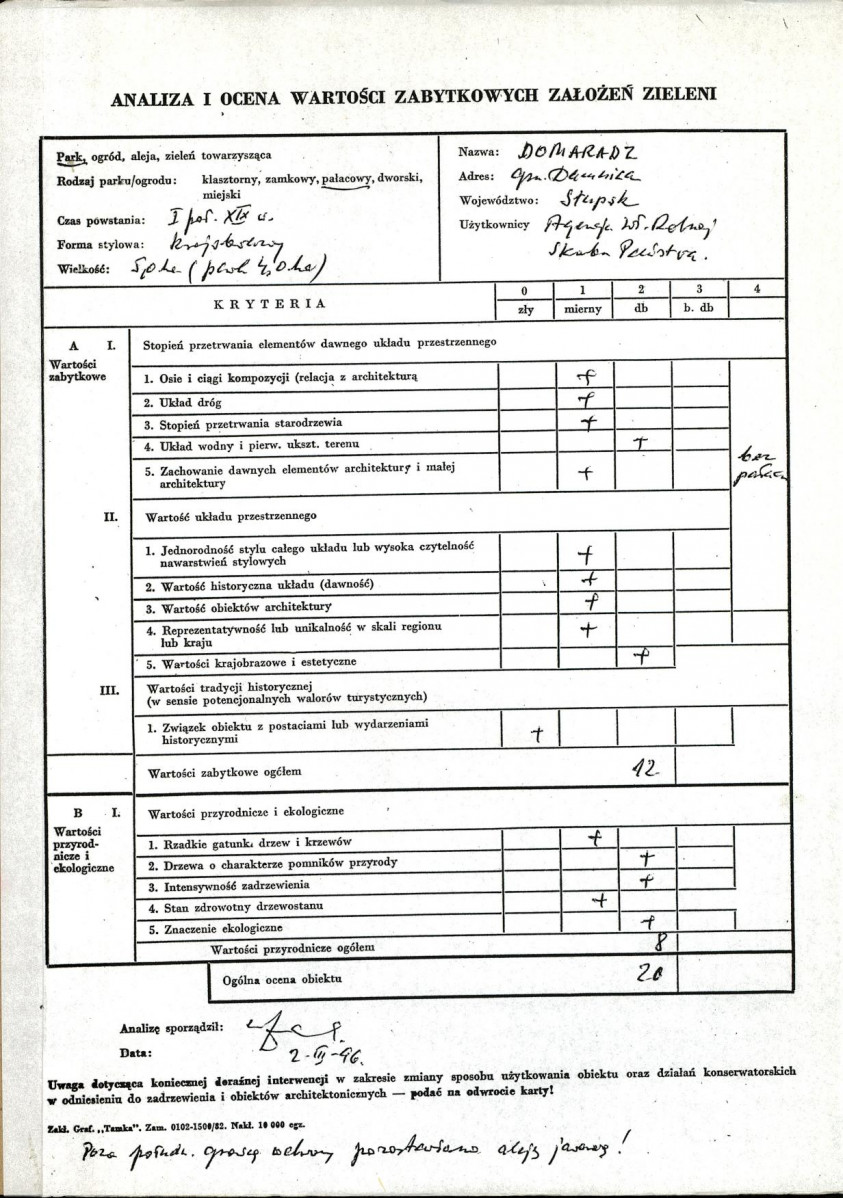 ANALIZA I OCENA WARTOŚCI ZABYTKOWYCH ZAŁOŻEŃ ZIELENI
Park, ogród, aleja, zieleń towarzysząca
Rodzaj parku/ogrodu: klasztorny, zamkowy, pałacowy, dworski,
miejski
Czas powstania: I poł. XIX w.
Forma stylowa: krajobrazowy
Wielkość: 5,0 ha (park 4,0 ha)
Nazwa: DOMARADZ
Adres: gm. Damnica
Województwo: Słupsk
Użytkownicy Agencja Wł. Rolnej
Skarbu Państwa.
KRYTERIA
0 1 2 3 4
zły mierny db b. db
A I. Stopień przetrwania elementów dawnego układu przestrzennego
Wartości
zabytkowe
1. Osie i ciągi kompozycji (relacja z architekturą +
2. Układ dróg +
3. Stopień przetrwania starodrzewia +
4. Układ wodny i pierw. ukszt. terenu +
5. Zachowanie dawnych elementów architektury i małej
architektury +
bez
pałacu
II. Wartość układu przestrzennego
1. Jednorodność stylu całego układu lub wysoka czytelność
nawarstwień stylowych +
2. Wartość historyczna układu (dawność) +
3. Wartość obiektów architektury +
4. Reprezentatywność lub unikalność w skali regionu
lub kraju +
5. Wartości krajobrazowe i estetyczne +
III. Wartości tradycji historycznej
(w sensie potencjonalnych walorów turystycznych)
1. Związek obiektu z postaciami lub wydarzeniami
historycznymi +
Wartości zabytkowe ogółem 12
B I. Wartości przyrodnicze i ekologiczne
Wartości
przyrod-
nicze i
ekologiczne
1. Rzadkie gatunki drzew i krzewów +
2. Drzewa o charakterze pomników przyrody +
3. Intensywność zadrzewienia +
4. Stan zdrowotny drzewostanu +
5. Znaczenie ekologiczne +
Wartości przyrodnicze ogółem 8
Ogólna ocena obiektu 20
Analizę sporządził:
Data: 2-III-96.
Uwaga dotycząca koniecznej doraźnej interwencji w zakresie zmiany sposobu użytkowania obiektu oraz działań konserwatorskich
w odniesieniu do zadrzewienia i obiektów architektonicznych — podać na odwrocie karty!
Zakł. Graf. „Tamka". Zam. 0102-1500/82. Nakł. 10 000 egz.
Poza połudn. granicą ochrony pozostawiono aleję jaworową!